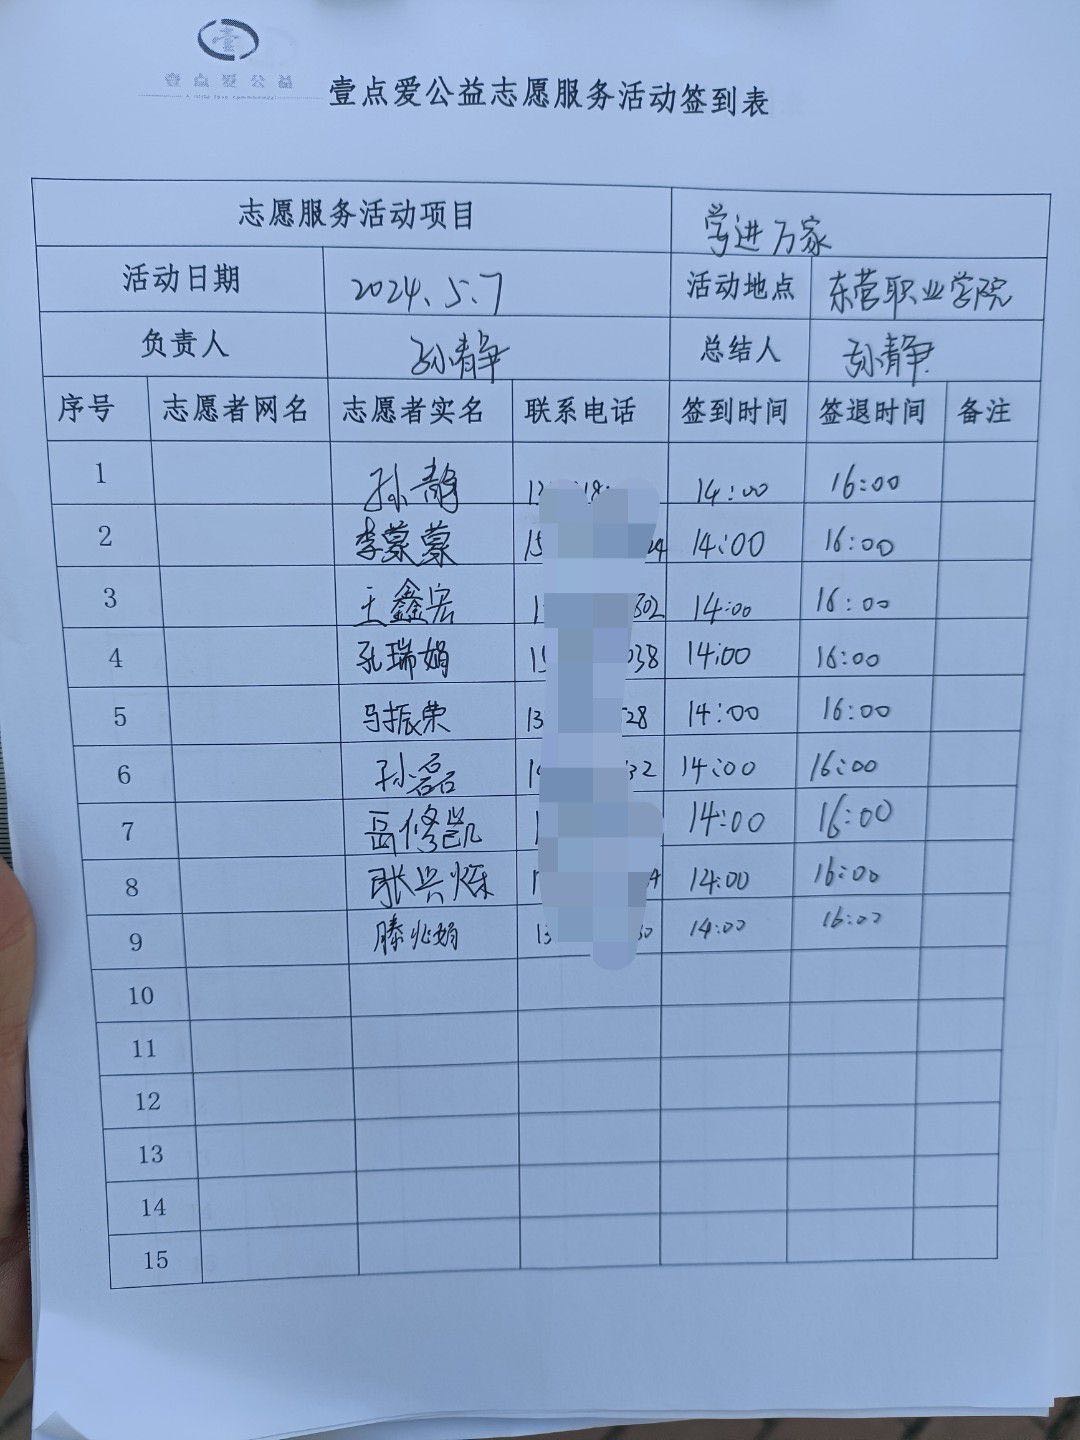 壹点爱公益
壹点爱公益志愿服务活动签到表
志愿服务活动项目 学进万家
活动日期 2024.5.7 活动地点 东营职业学院
负责人 孙静 总结人 孙静
序号 志愿者网名 志愿者实名 联系电话 签到时间 签退时间 备注
1 孙静 14:00 16:00
2 李蒙蒙 15 24 14:00 16:00
3 王鑫宏 1 302 14:00 16:00
4 孔瑞娟 15 038 14:00 16:00
5 马振荣 13 28 14:00 16:00
6 孙磊 1 32 14:00 16:00
7 岳修凯 1 14:00 16:00
8 张兴烁 1 4 14:00 16:00
9 滕兆娟 13 30 14:00 16:00
10
11
12
13
14
15